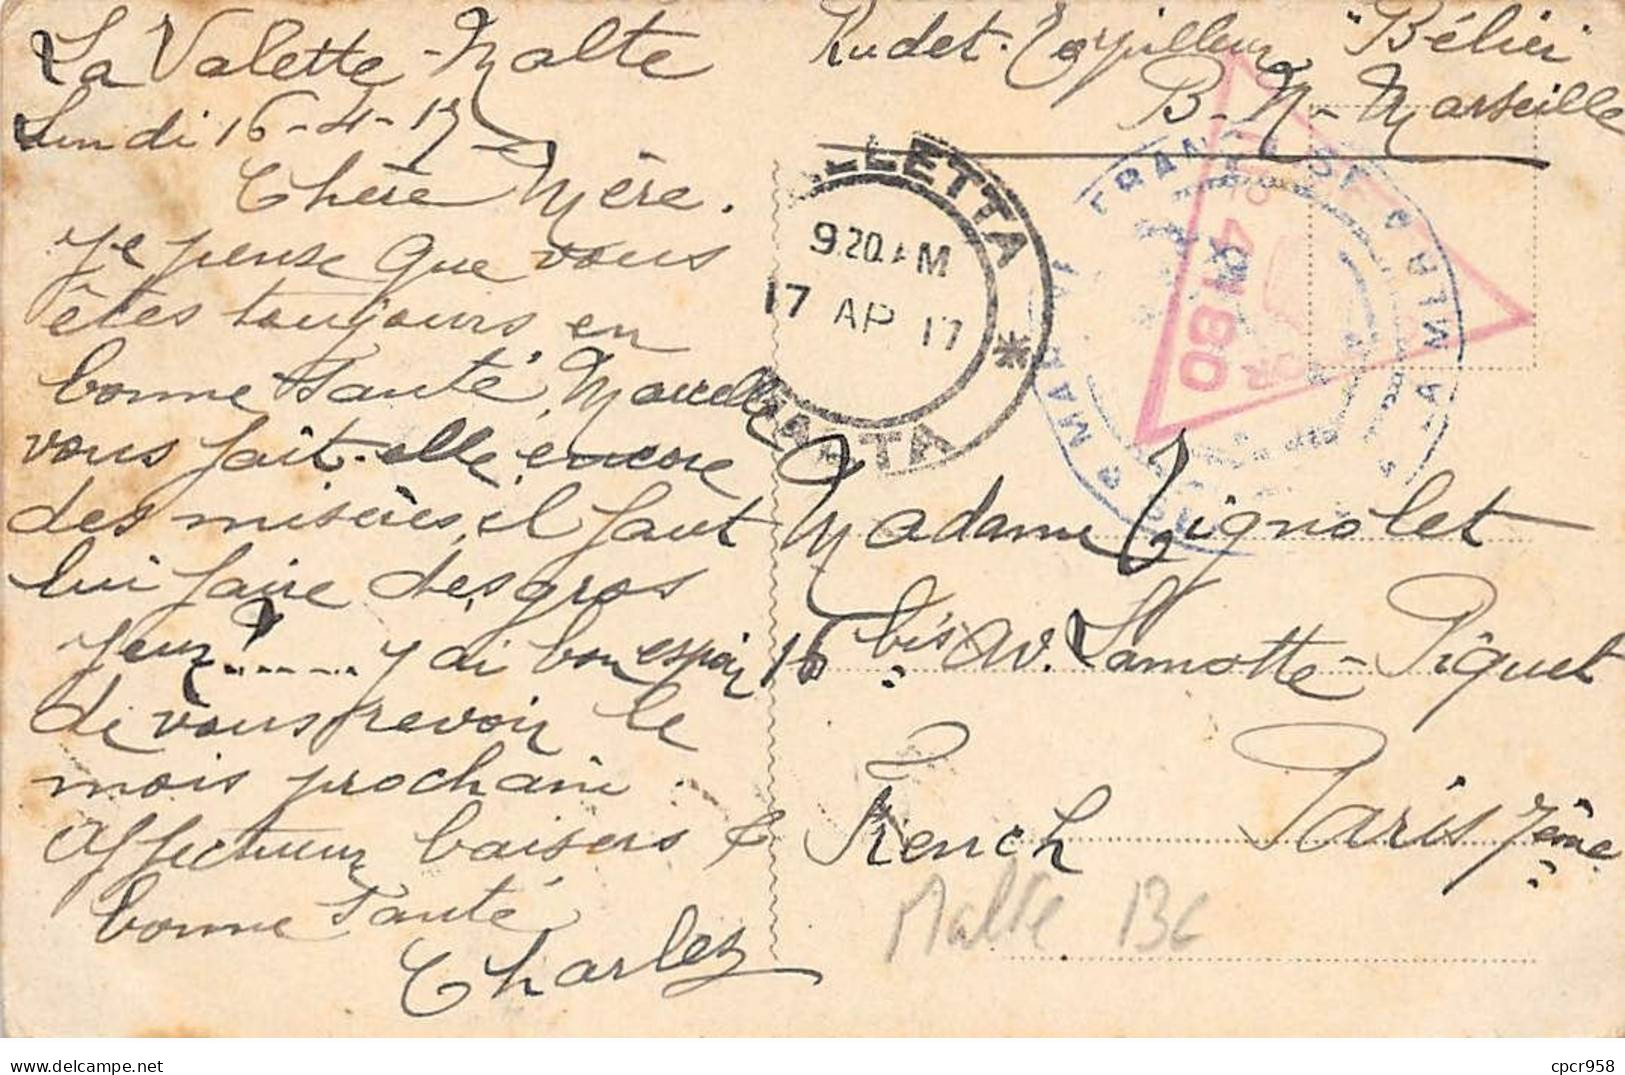 La Valette - Malte
Lundi 16-4-17
Chère Mère.
je pense que vous
êtes toujours en
bonne santé, Marcelle
vous fait-elle encore
des misères, il faut
lui faire des gros
yeux!...... j'ai bon espoir
de vous revoir le
mois prochain.
Affectueux baisers &
bonne santé
Charles
Rudet. Torpilleur "Bélier
B-N- Marseille
VALLETTA
9.20 AM
17 AP 17
MALTA
FRANC
4180
Madame Vignolet
16 bis Av. Lamotte-Piquet
Paris 7ème
French
Malte BC
cpcr958